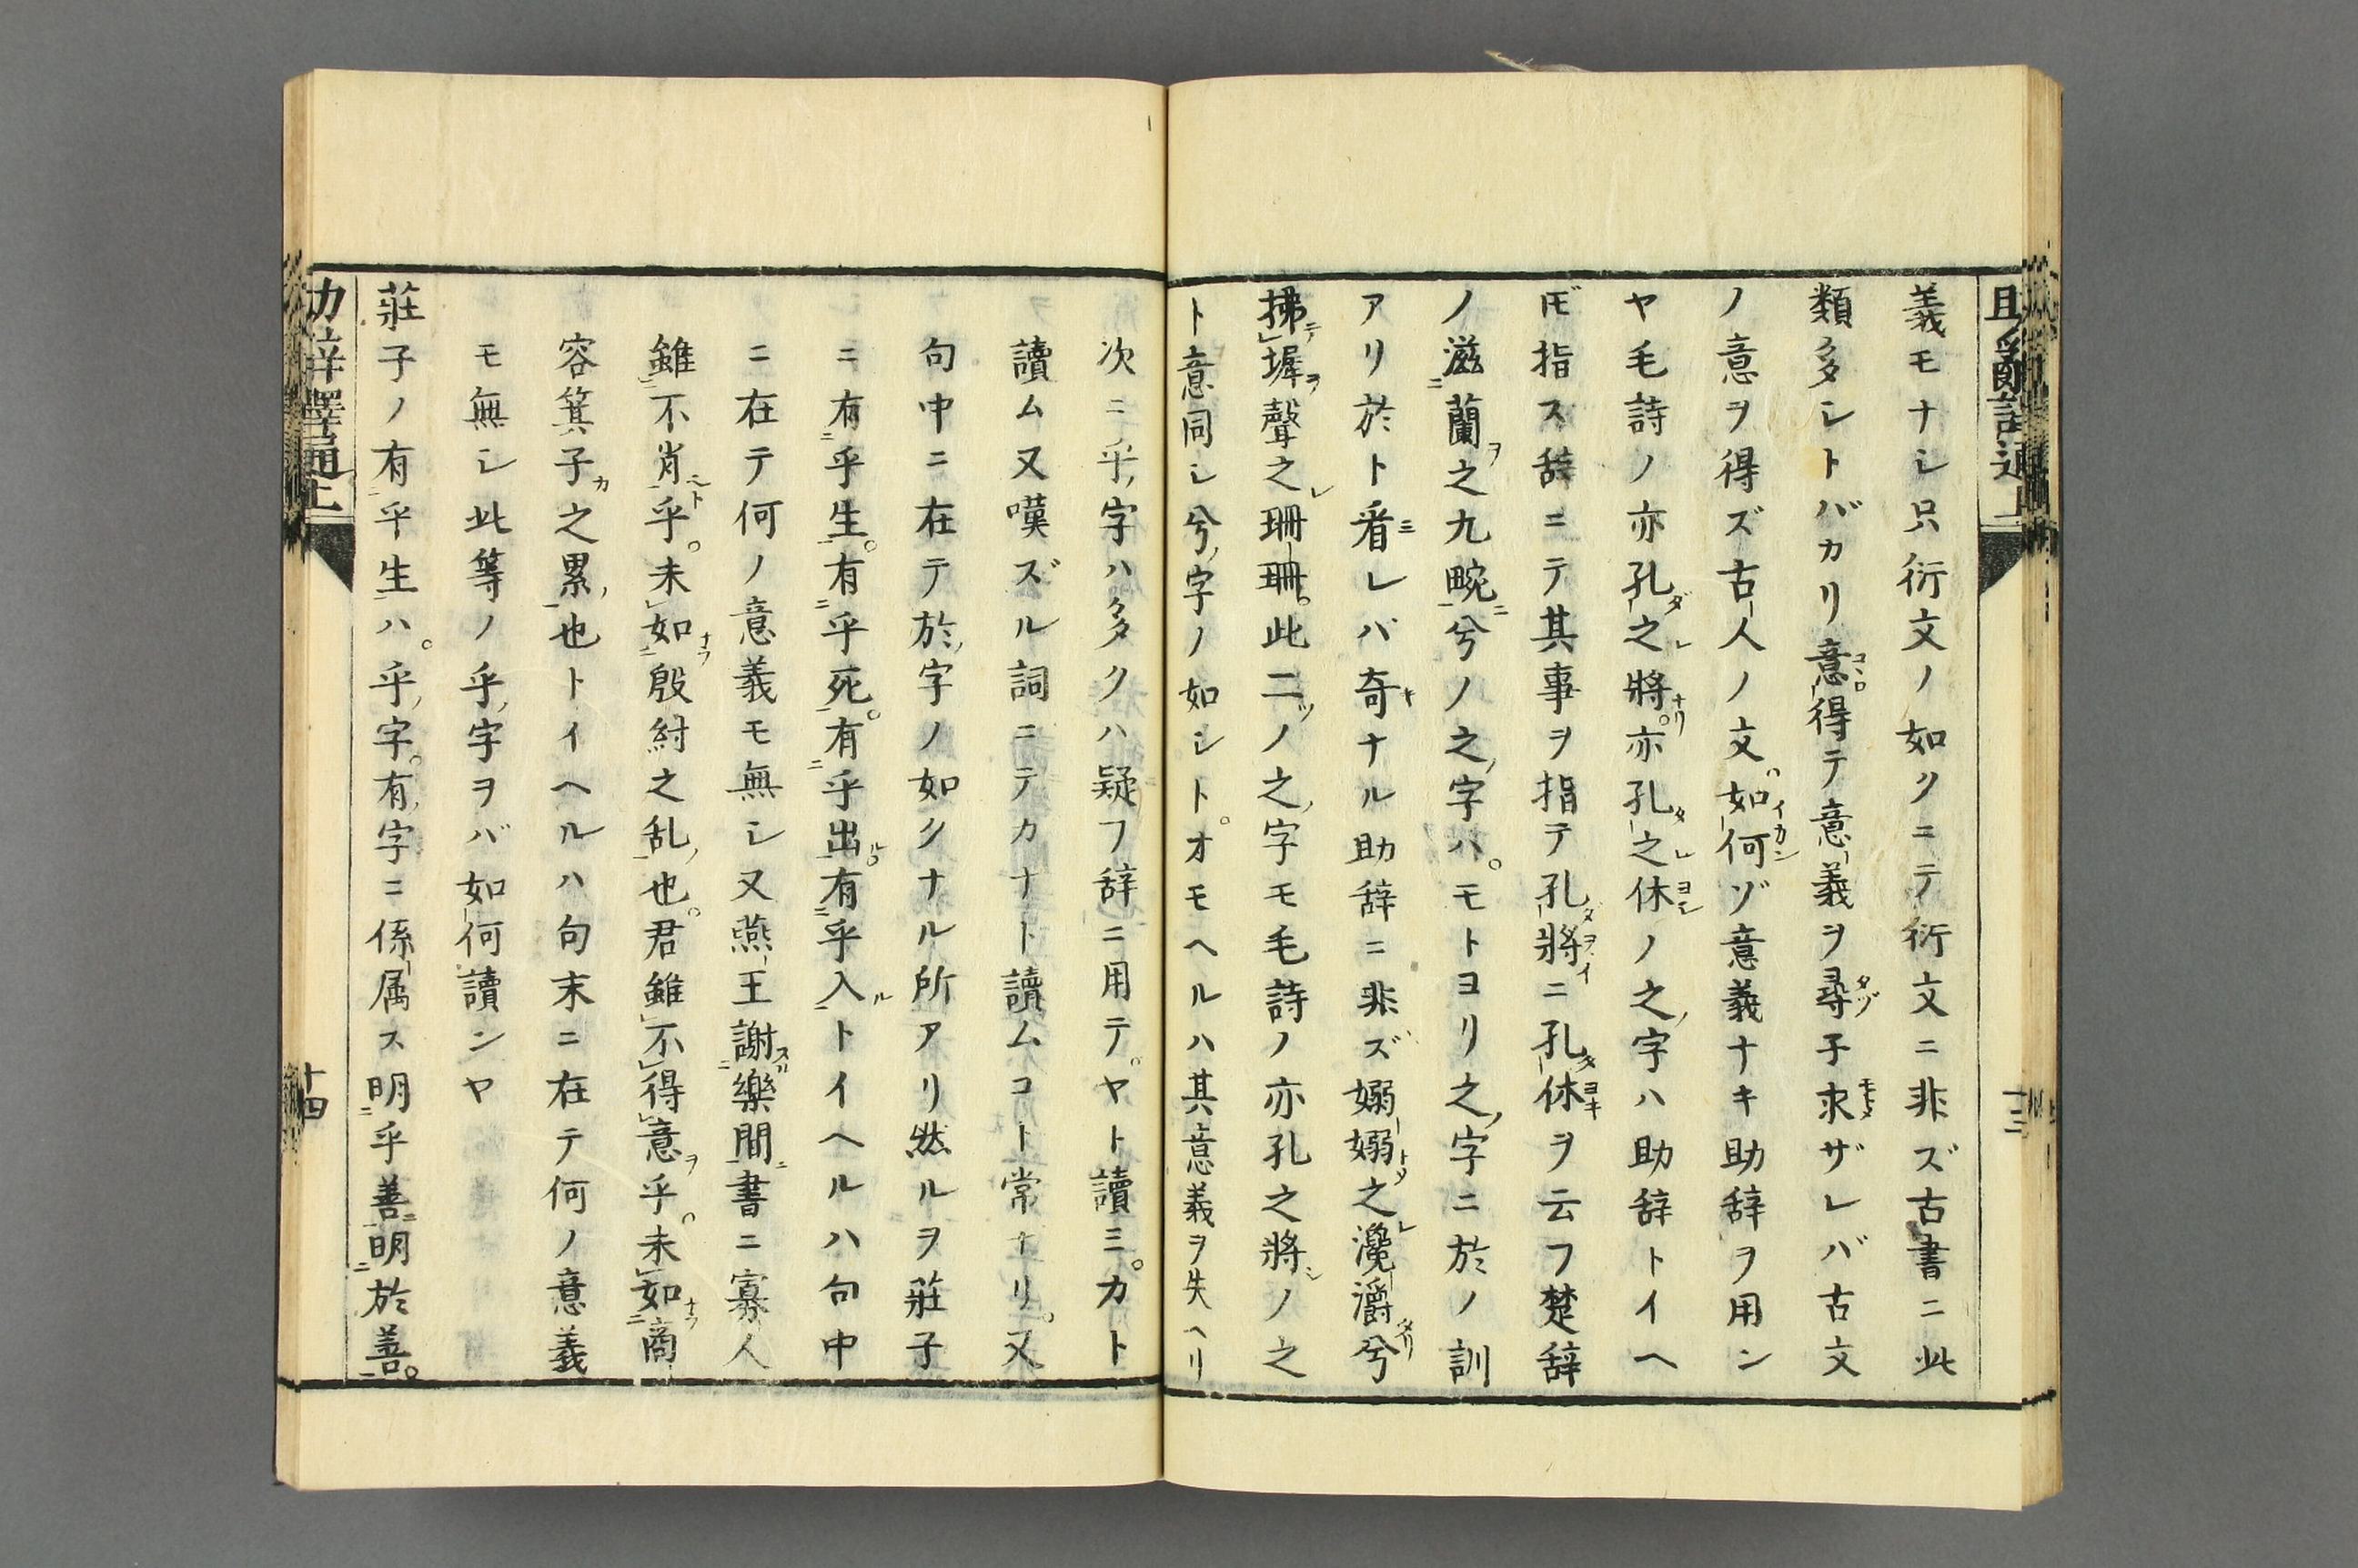 義モナシ只衍文ノ如クニテ衍文ニ非ズ古書ニ此
類多シトバカリ意得テ意義ヲ尋子求ザレバ古文
ノ意ヲ得ズ古人ノ文如何ゾ意義ナキ助辞ヲ用ン
ヤ毛詩ノ亦孔之將亦孔之休ノ之字ハ助辞トイヘ
𪜈指ス辞ニテ其事ヲ指テ孔將ニ孔休ヲ云フ楚辞
ノ滋蘭之九畹兮ノ之字ハモトヨリ之字ニ於ノ訓
アリ於ト看レバ奇ナル助辞ニ非ズ嫋嫋之瀺灂兮
拂墀聲之珊珊此二ツノ之字モ毛詩ノ亦孔之將ノ之
ト意同シ兮字ノ如シトオモヘルハ其意義ヲ失ヘリ
次ニ乎字ハ多クハ疑フ辞ニ用テヤト讀ミカト
讀ム又嘆ズル詞ニテカナト讀ムコト常ナリ又
句中ニ在テ於字ノ如クナル所アリ然ルヲ莊子
ニ有乎生有乎死有乎出有乎入トイヘルハ句中
ニ在テ何ノ意義モ無シ又燕王謝樂間書ニ寡人
雖不肖乎未如殷紂之乱也君雖不得意乎未如商
容箕子之累也トイヘルハ句末ニ在テ何ノ意義
モ無シ此等ノ乎字ヲバ如何讀ンヤ
莊子ノ有乎生ハ乎字有字ニ係属ス明乎善明於善
十四